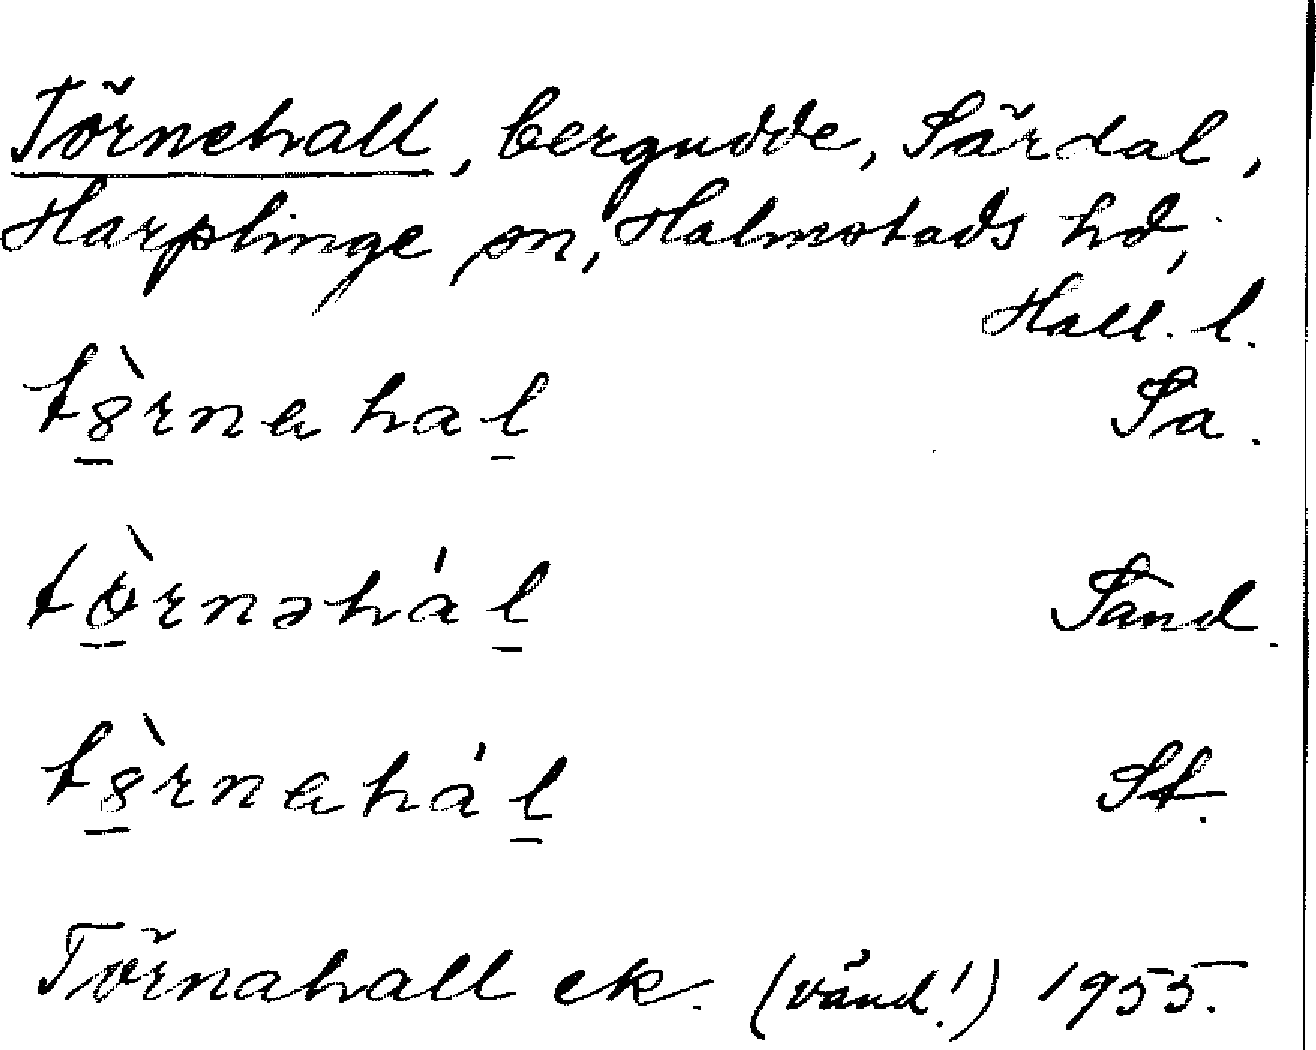 Törnehall, bergudde, Särdal,
Harplinge sn, Halmstads hd,
Hall. l.
t8̱̀rnahaḻ Sa.
tò̱rnəháḻ Sand.
t8̱̀rnaháḻ St.
Törnahall ek. (vänd!) 1955.